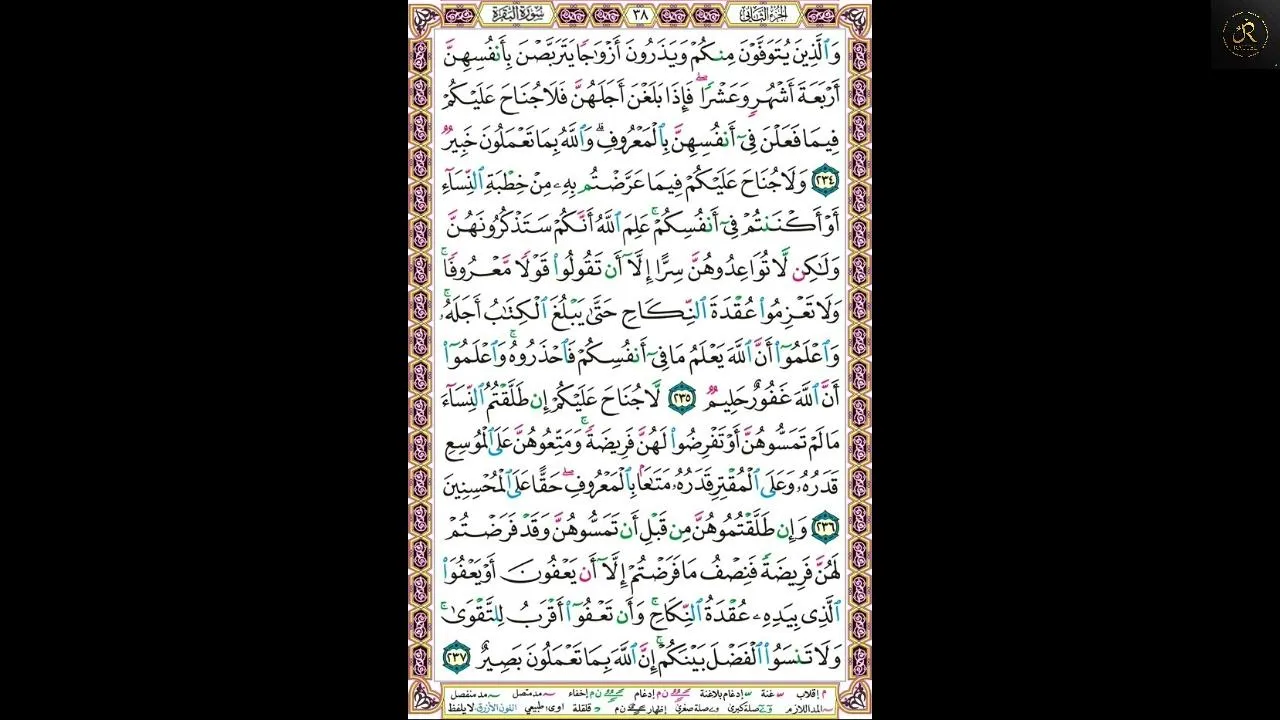 الجزء الثاني ٣٨ سورة البقرة
وَٱلَّذِينَ يُتَوَفَّوْنَ مِنكُمْ وَيَذَرُونَ أَزْوَٰجًا يَتَرَبَّصْنَ بِأَنفُسِهِنَّ
أَرْبَعَةَ أَشْهُرٍ وَعَشْرًا ۖ فَإِذَا بَلَغْنَ أَجَلَهُنَّ فَلَا جُنَاحَ عَلَيْكُمْ
فِيمَا فَعَلْنَ فِىٓ أَنفُسِهِنَّ بِٱلْمَعْرُوفِ ۗ وَٱللَّهُ بِمَا تَعْمَلُونَ خَبِيرٌ
٢٣٤ وَلَا جُنَاحَ عَلَيْكُمْ فِيمَا عَرَّضْتُم بِهِۦ مِنْ خِطْبَةِ ٱلنِّسَآءِ
أَوْ أَكْنَنتُمْ فِىٓ أَنفُسِكُمْ ۚ عَلِمَ ٱللَّهُ أَنَّكُمْ سَتَذْكُرُونَهُنَّ
وَلَٰكِن لَّا تُوَاعِدُوهُنَّ سِرًّا إِلَّآ أَن تَقُولُوا۟ قَوْلًا مَّعْرُوفًا ۚ
وَلَا تَعْزِمُوا۟ عُقْدَةَ ٱلنِّكَاحِ حَتَّىٰ يَبْلُغَ ٱلْكِتَٰبُ أَجَلَهُۥ ۚ
وَٱعْلَمُوٓا۟ أَنَّ ٱللَّهَ يَعْلَمُ مَا فِىٓ أَنفُسِكُمْ فَٱحْذَرُوهُ ۚ وَٱعْلَمُوٓا۟
أَنَّ ٱللَّهَ غَفُورٌ حَلِيمٌ ٢٣٥ لَّا جُنَاحَ عَلَيْكُمْ إِن طَلَّقْتُمُ ٱلنِّسَآءَ
مَا لَمْ تَمَسُّوهُنَّ أَوْ تَفْرِضُوا۟ لَهُنَّ فَرِيضَةً ۚ وَمَتِّعُوهُنَّ عَلَى ٱلْمُوسِعِ
قَدَرُهُۥ وَعَلَى ٱلْمُقْتِرِ قَدَرُهُۥ مَتَٰعًۢا بِٱلْمَعْرُوفِ ۖ حَقًّا عَلَى ٱلْمُحْسِنِينَ
٢٣٦ وَإِن طَلَّقْتُمُوهُنَّ مِن قَبْلِ أَن تَمَسُّوهُنَّ وَقَدْ فَرَضْتُمْ
لَهُنَّ فَرِيضَةً فَنِصْفُ مَا فَرَضْتُمْ إِلَّآ أَن يَعْفُونَ أَوْ يَعْفُوَا۟
ٱلَّذِى بِيَدِهِۦ عُقْدَةُ ٱلنِّكَاحِ ۚ وَأَن تَعْفُوٓا۟ أَقْرَبُ لِلتَّقْوَىٰ ۚ
وَلَا تَنسَوُا۟ ٱلْفَضْلَ بَيْنَكُمْ ۚ إِنَّ ٱللَّهَ بِمَا تَعْمَلُونَ بَصِيرٌ ٢٣٧
م إقلاب غنة إدغام بلاغنة ن م إدغام ن م إخفاء مد متصل مد منفصل
المد اللازم صلة كبرى صلة صغرى إظهار ن م قلقلة اوى طبيعي اللون الأزرق لا يلفظ